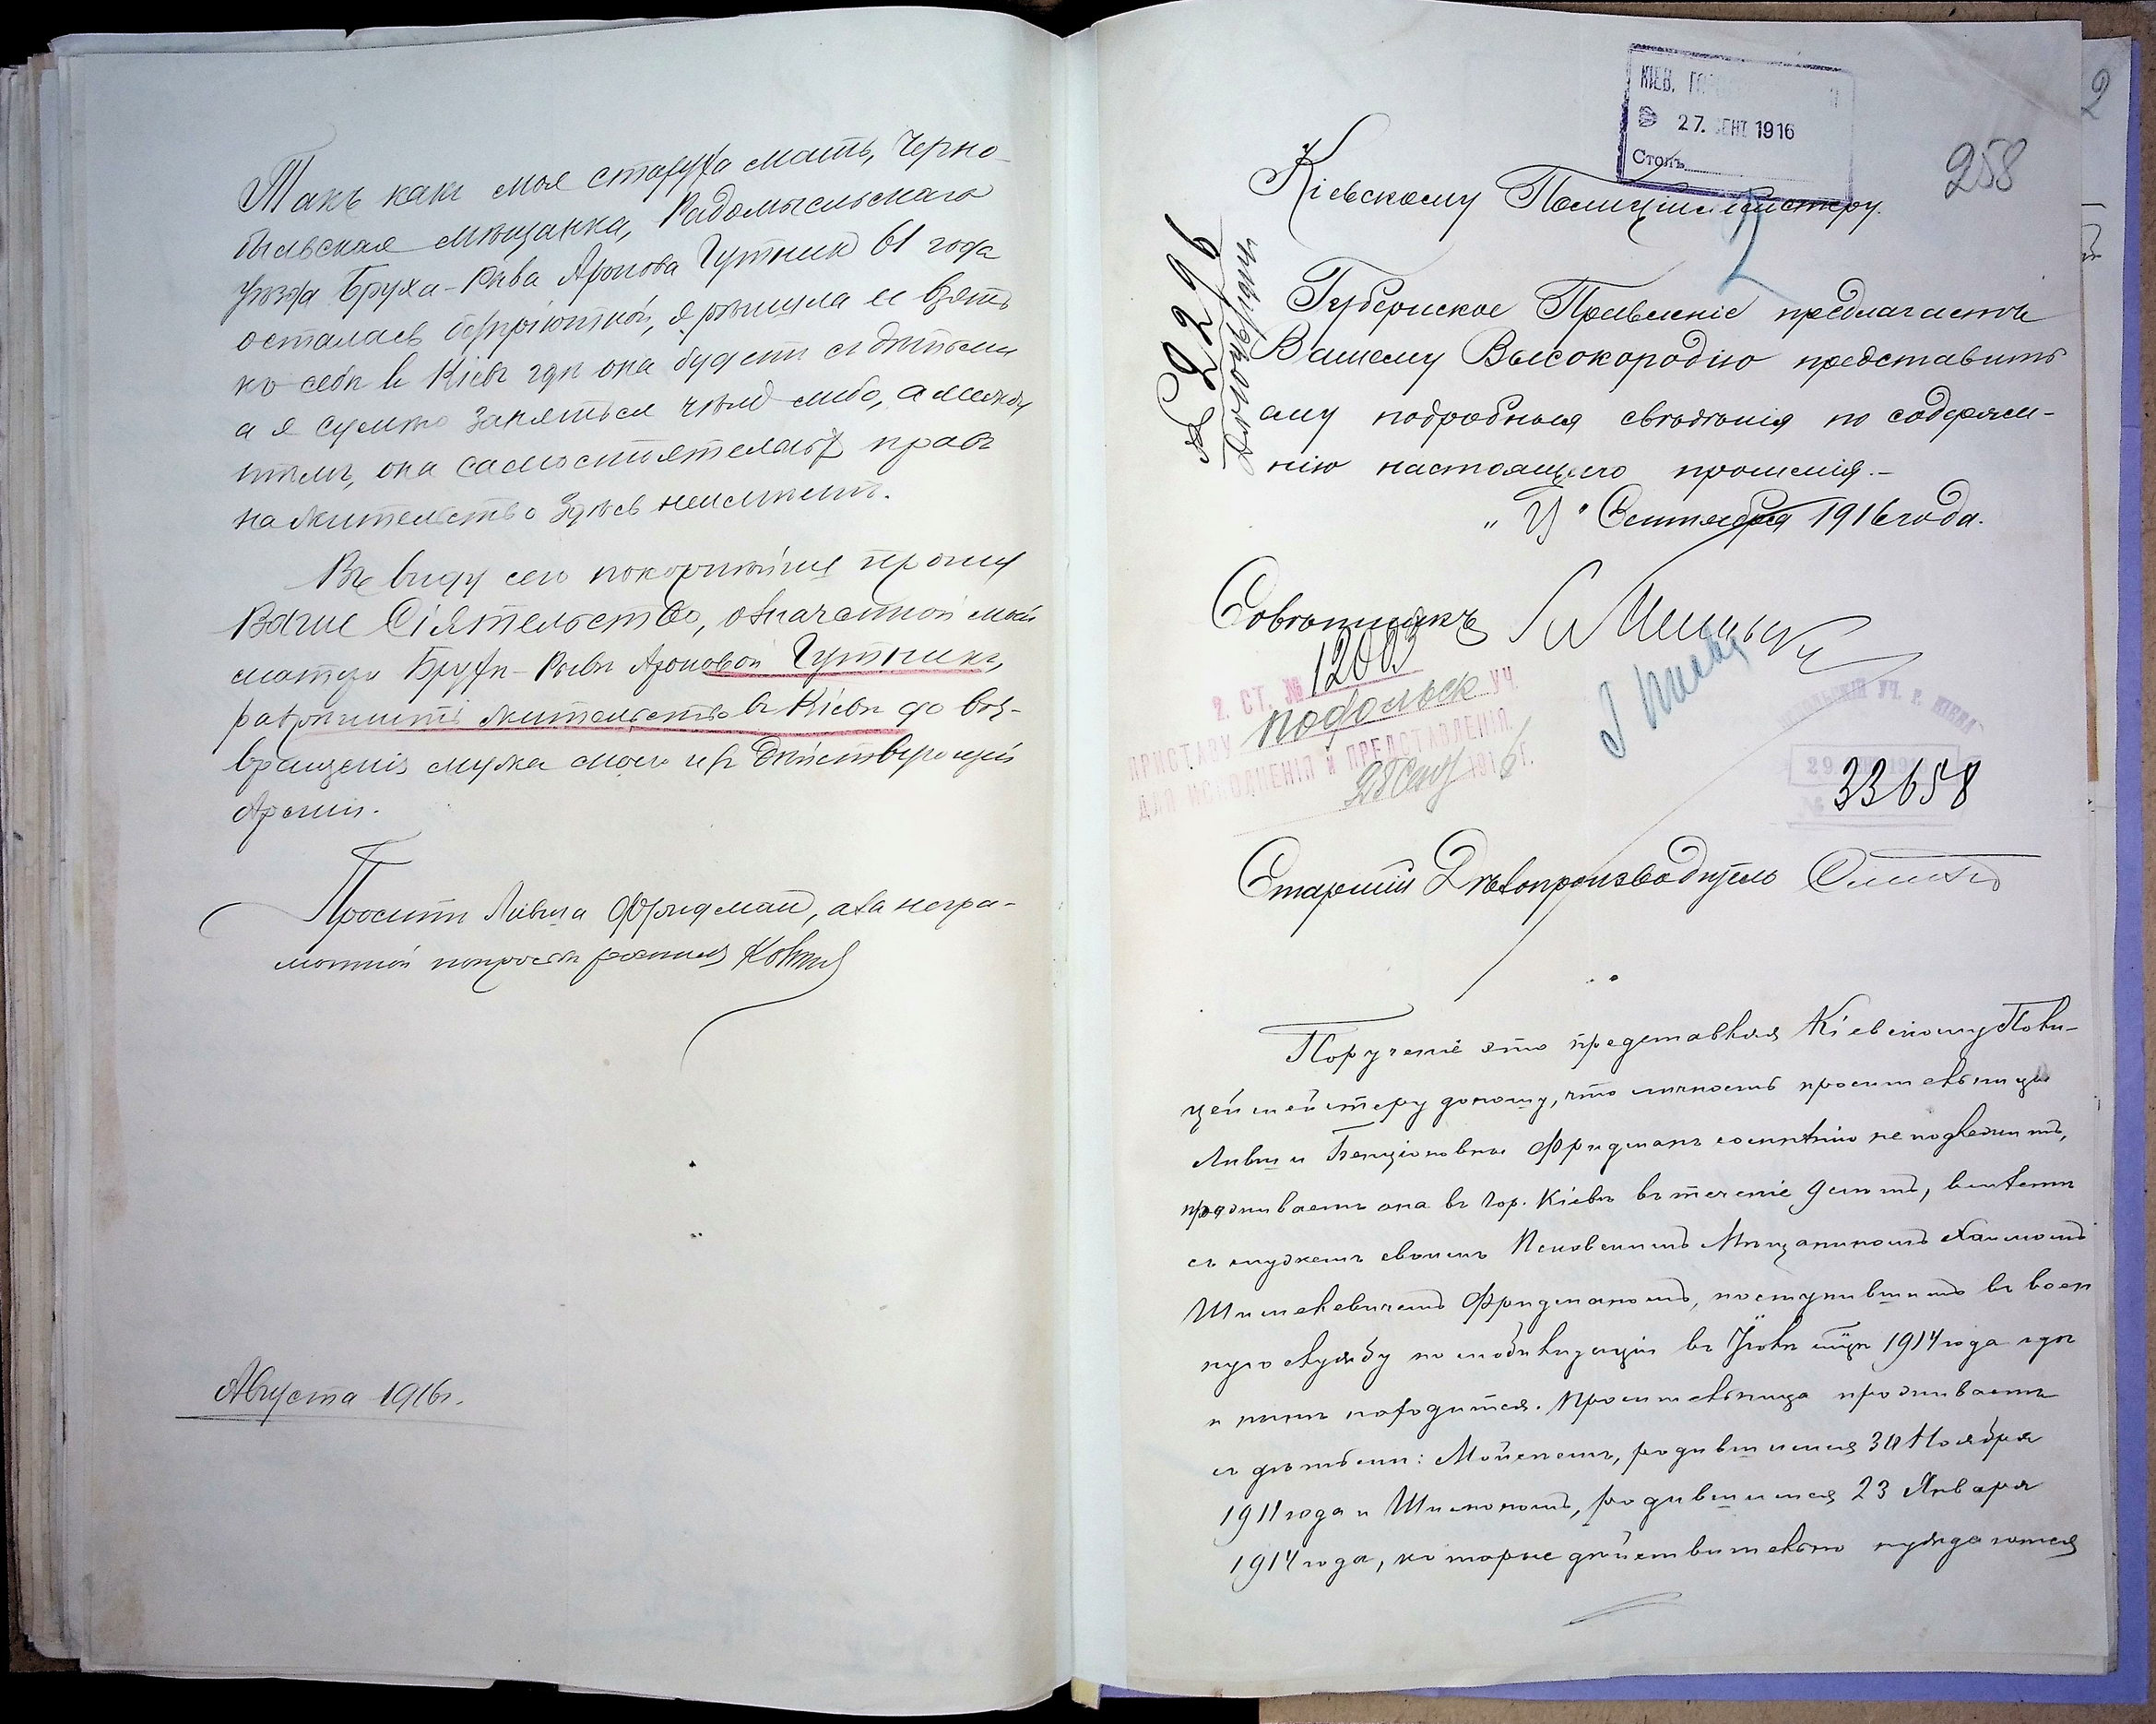 Такъ какъ моя старуха мать, Черно-
быльская мѣщанка, Радомысльскаго
уѣзда Бруха-Рива Аронова Гутникъ 61 года
осталась безпріютной, я рѣшила ее взять
къ себѣ въ Кіевъ гдѣ она будетъ съ дѣтьми
а я сумѣю заняться чѣмъ либо, а между
тѣмъ, она самостоятельныхъ правъ
на жительство здѣсь не имѣетъ.
Въ виду сего покорнѣйше прошу
Ваше Сіятельство, означенной моей
матери Брухѣ-Ривѣ Ароновой Гутникъ,
разрѣшить жительство въ Кіевѣ до воз-
вращенія мужа моего изъ Дѣйствующей
Арміи.
Проситъ Ливша Фридманъ, а за негра-
мотной по просьбѣ
Августа 1916г.
258
КІЕВ.
27. СЕНТ 1916
Столъ
Кіевскому Полицiймейстеру.
№ 2296
Губернское Правленіе предлагаетъ
Вашему Высокородію представить
ему подробныя свѣдѣнія по содержа-
нію настоящаго прошенія.-
Сентября 1916 года.
Совѣтникъ
2. СТ. № 12003
ПРИСТАВУ Подольск УЧ.
ДЛЯ ИСПОЛНЕНІЯ И ПРЕДСТАВЛЕНІЯ.
Сент 1916 Г.
УЧ. г. КІЕВА
33658
Старшій Дѣлопроизводитель
Порученіе это представляя Кіевскому Поли-
цеймейстеру доношу, что личность просительницы
Лившы Бенціоновны Фридманъ сомнѣнію не подлежитъ,
проживаетъ она въ гор. Кіевѣ въ теченіе 9 лѣтъ, вмѣстѣ
съ мужемъ своимъ Мѣщаниномъ Хаимомъ
Шмулевичемъ Фридманомъ, поступившимъ въ воен
ную службу по мобилизаціи въ Іюлѣ мцѣ 1914 года гдѣ
и нынѣ находится. Просительница проживаетъ
съ дѣтьми: Мойсеемъ, родившимся 30 Ноября
1911 года и Шимономъ, родившимся 23 Января
1914 года, которые дѣйствительно нуждаются